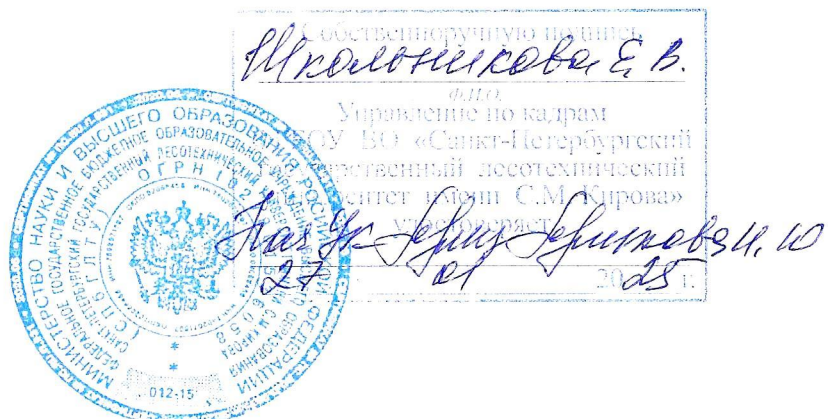 Собственноручную подпись
Школьникова Е. В.
Ф.И.О.
Управление по кадрам
ОУ ВО «Санкт-Петербургский
государственный лесотехнический
университет имени С.М.Кирова»
удостоверяет
Нач УК
27 01 2025 г.
МИНИСТЕРСТВО НАУКИ И ВЫСШЕГО ОБРАЗОВАНИЯ РОССИЙСКОЙ ФЕДЕРАЦИИ
ФЕДЕРАЛЬНОЕ ГОСУДАРСТВЕННОЕ БЮДЖЕТНОЕ ОБРАЗОВАТЕЛЬНОЕ УЧРЕЖДЕНИЕ ВЫСШЕГО ОБРАЗОВАНИЯ
САНКТ-ПЕТЕРБУРГСКИЙ ГОСУДАРСТВЕННЫЙ ЛЕСОТЕХНИЧЕСКИЙ
ИМЕНИ С.М.КИРОВА
(СПбГЛТУ)
ОГРН 102
012-15